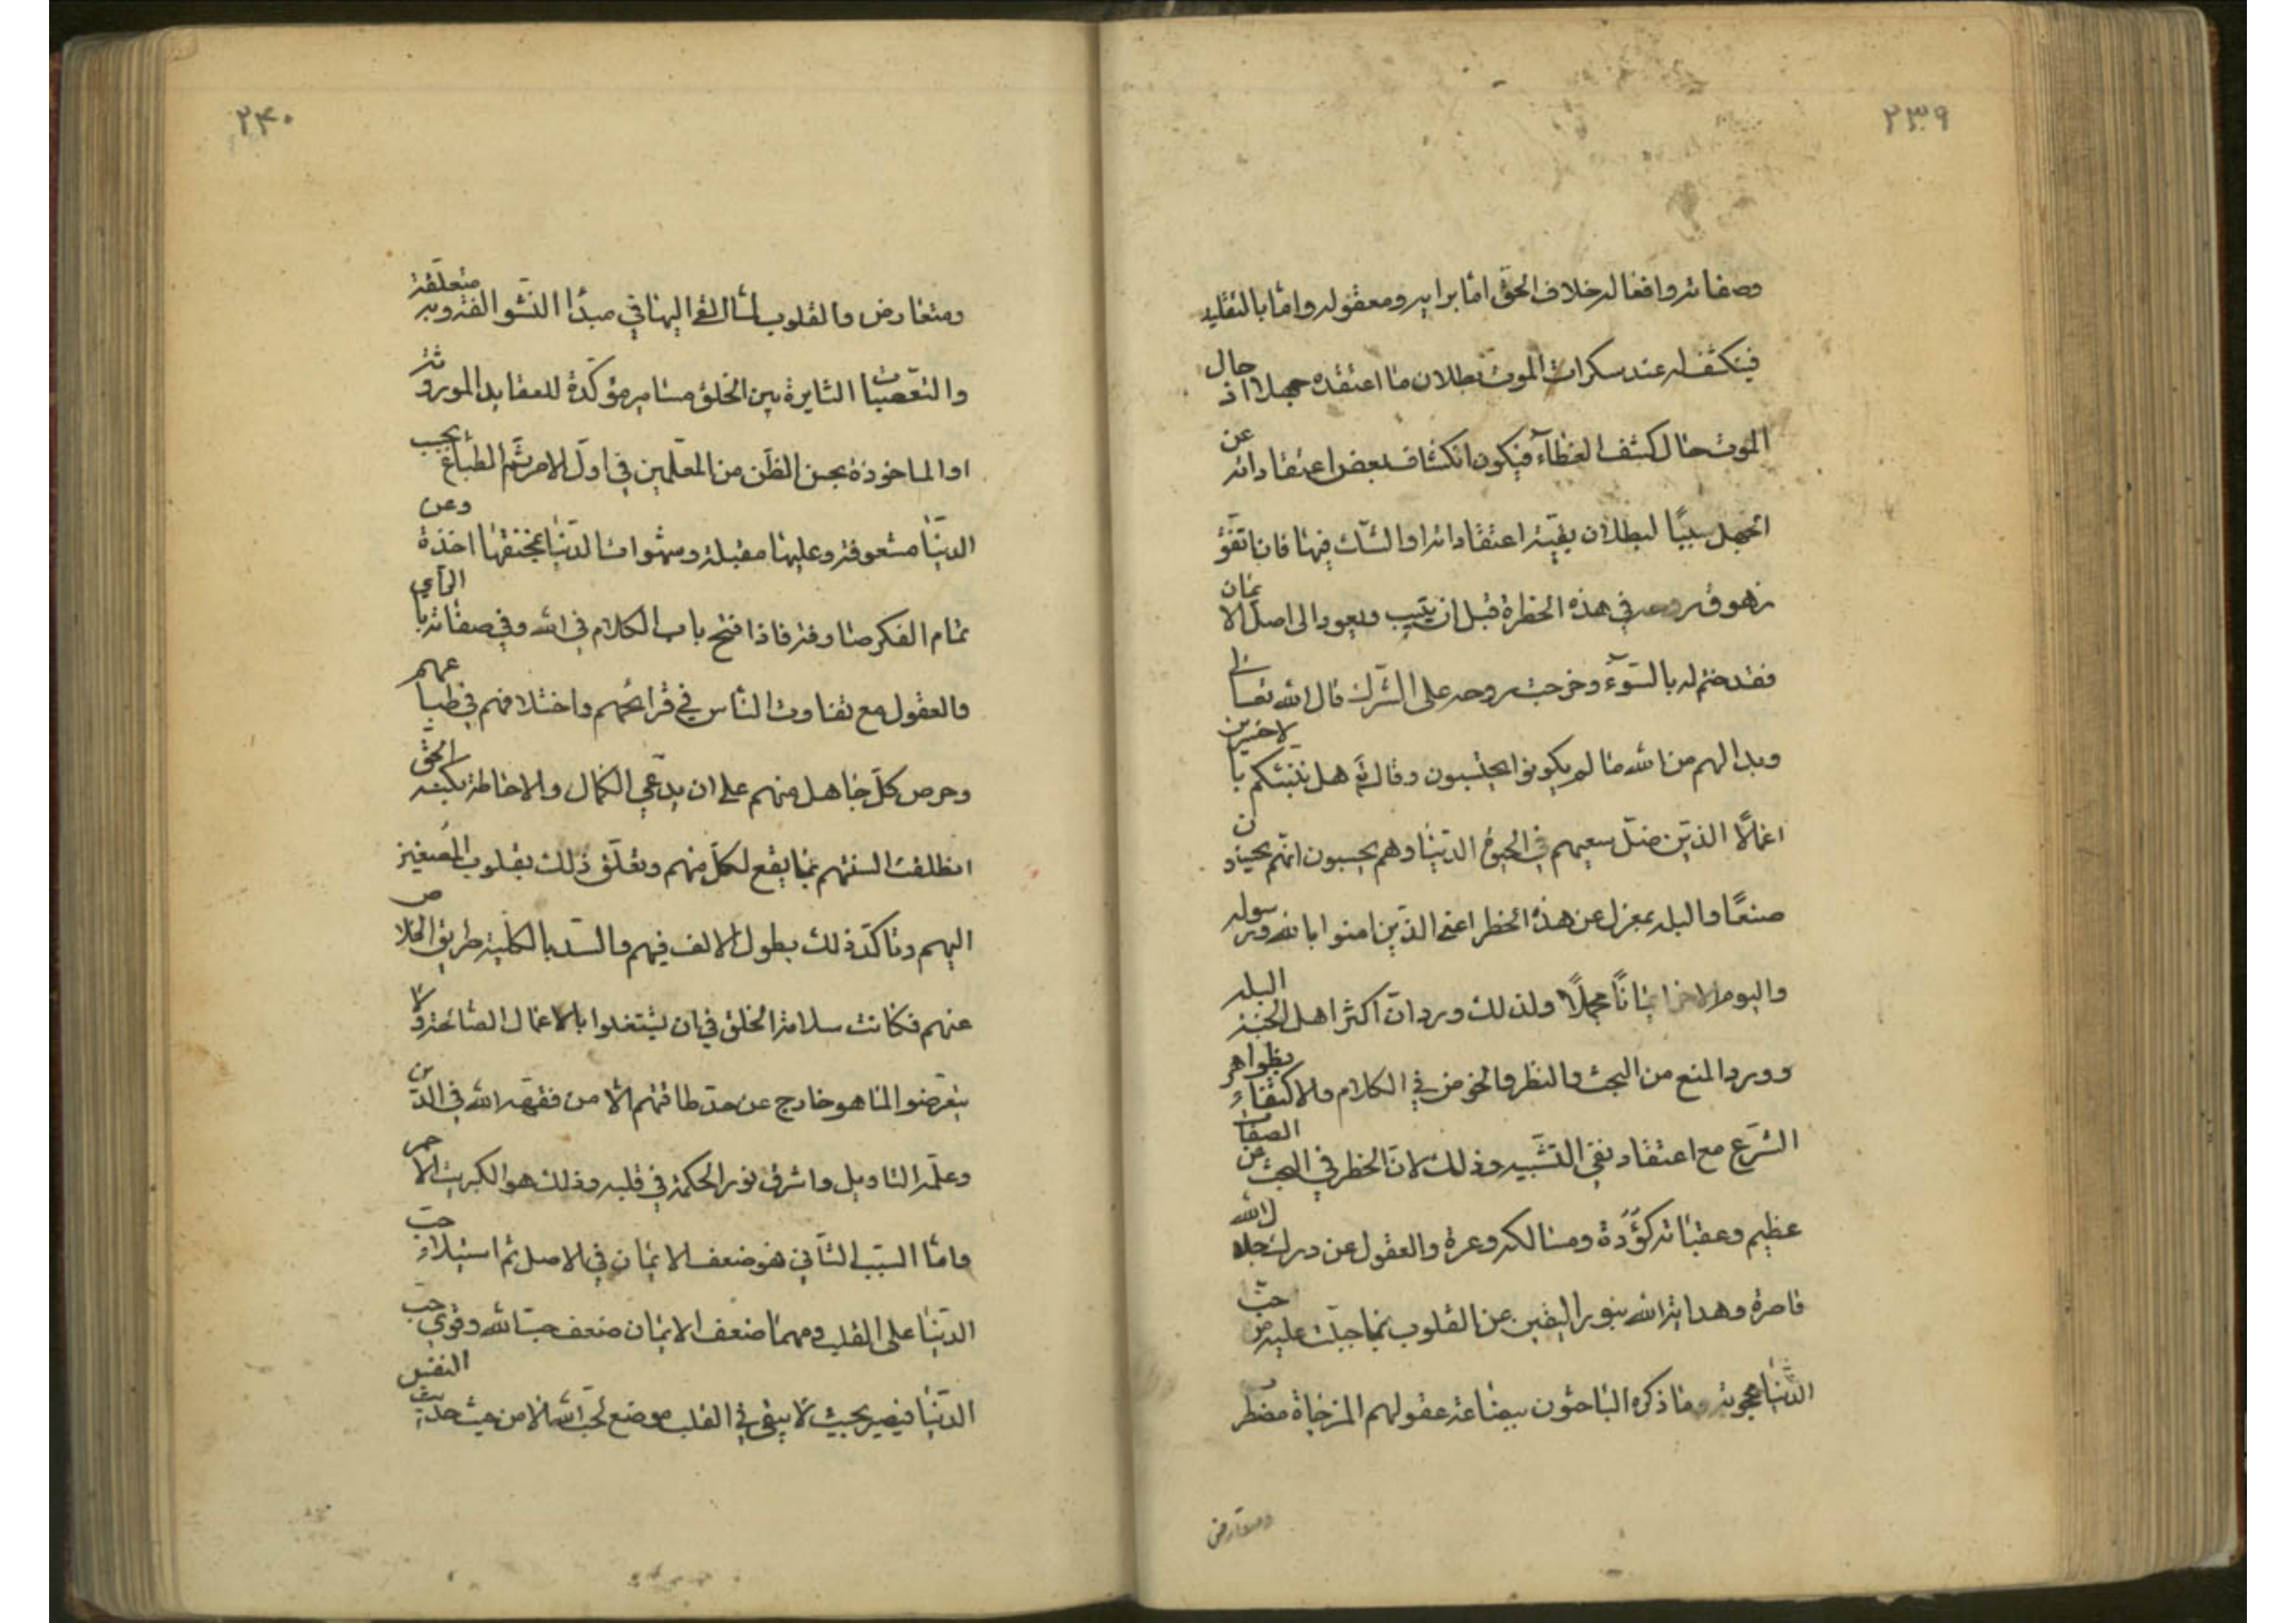 ٢٣٩
وصفاته وافعاله خلاف الحق اما برايه ومعقوله واما بالتقليد
فينكشف له عند سكرات الموت بطلان ما اعتقده جهلا اذ حال
الموت حال كشف الغطآء فيكون انكشاف بعض اعتقاداته عن
الجهل سببًا لبطلان بقيّة اعتقاداته او الشك فيها فان اتفق
زهوق روحه في هذه الخطرة قبل ان يتيب ويعود الى اصل الايمان
فقد ختم له بالسوٓء وخرجت روحه على الشرك قال الله تعالى
وبدا لهم من الله ما لم يكونوا يحتسبون وقال تع هل ننبئكم بالاخسرين
اعمالًا الذين ضل سعيهم في الحيوة الدنيا وهم يحسبون انهم يحسنون
صنعًا والبله بمعزل عن هذه الخطر اعنى الذين امنوا بالله وبرسوله
واليوم الاخر ايمانًا مجملًا ولذلك ورد ان اكثر اهل الجنة البله
وورد المنع من البحث والنظر والخوض في الكلام والاكتفاء بظواهر
الشرع مع اعتقاد نفي التشبيه وذلك لان الخطر في البحث عن الصفات
عظيم وعقباته كؤدة ومسالكه وعرة والعقول عن درك جلال الله
قاصرة وهداية الله بنور اليقين عن القلوب بما جبلت عليه من حبّ
الدنيا محجوبة وما ذكره الباحثون ببضاعة عقولهم المزجاة مضطرب
ومتعارض
٢٤٠
ومتعارض والقلوب لما القي اليها في مبدأ النشو الفة وبه متعلقة
والتعصبات الثايرة بين الخلق مسامير مؤكدة للعقايد الموروثة
او الماخوذة بحسن الظن من المعلمين في اول الامر ثم الطباع بحب
الدنيا مشعوفة وعليها مقبلة وشهوات الدنيا بمخنقها اخذة وعن
تمام الفكر صارفة فاذا فتح باب الكلام في الله وفي صفاته بالرأي
والعقول مع تفاوت الناس في قرائحهم واختلافهم في طباعهم
وحرص كل جاهل منهم على ان يدعي الكمال والاحاطة بكنه الحق
انطلقت السنتهم بما يقع لكل منهم وتعلق ذلك بقلوب المصغين
اليهم وتاكد ذلك بطول الالف فيهم وانسد بالكلية طريق الخلاص
عنهم فكانت سلامة الخلق في ان يشتغلوا بالاعمال الصالحة ولا
يتعرضوا لما هو خارج عن حد طاقتهم الا من فقهه الله في الدين
وعلمه التاويل واشرق نور الحكمة في قلبه وذلك هو الكبريت الاحمر
واما السبب الثاني فهو ضعف الايمان في الاصل ثم استيلاء حب
الدنيا على القلب ومهما ضعف الايمان ضعف حب الله وقوي حب
الدنيا فيصير بحيث لا يبقى في القلب موضع لحب الله الا من حيث حديث النفس